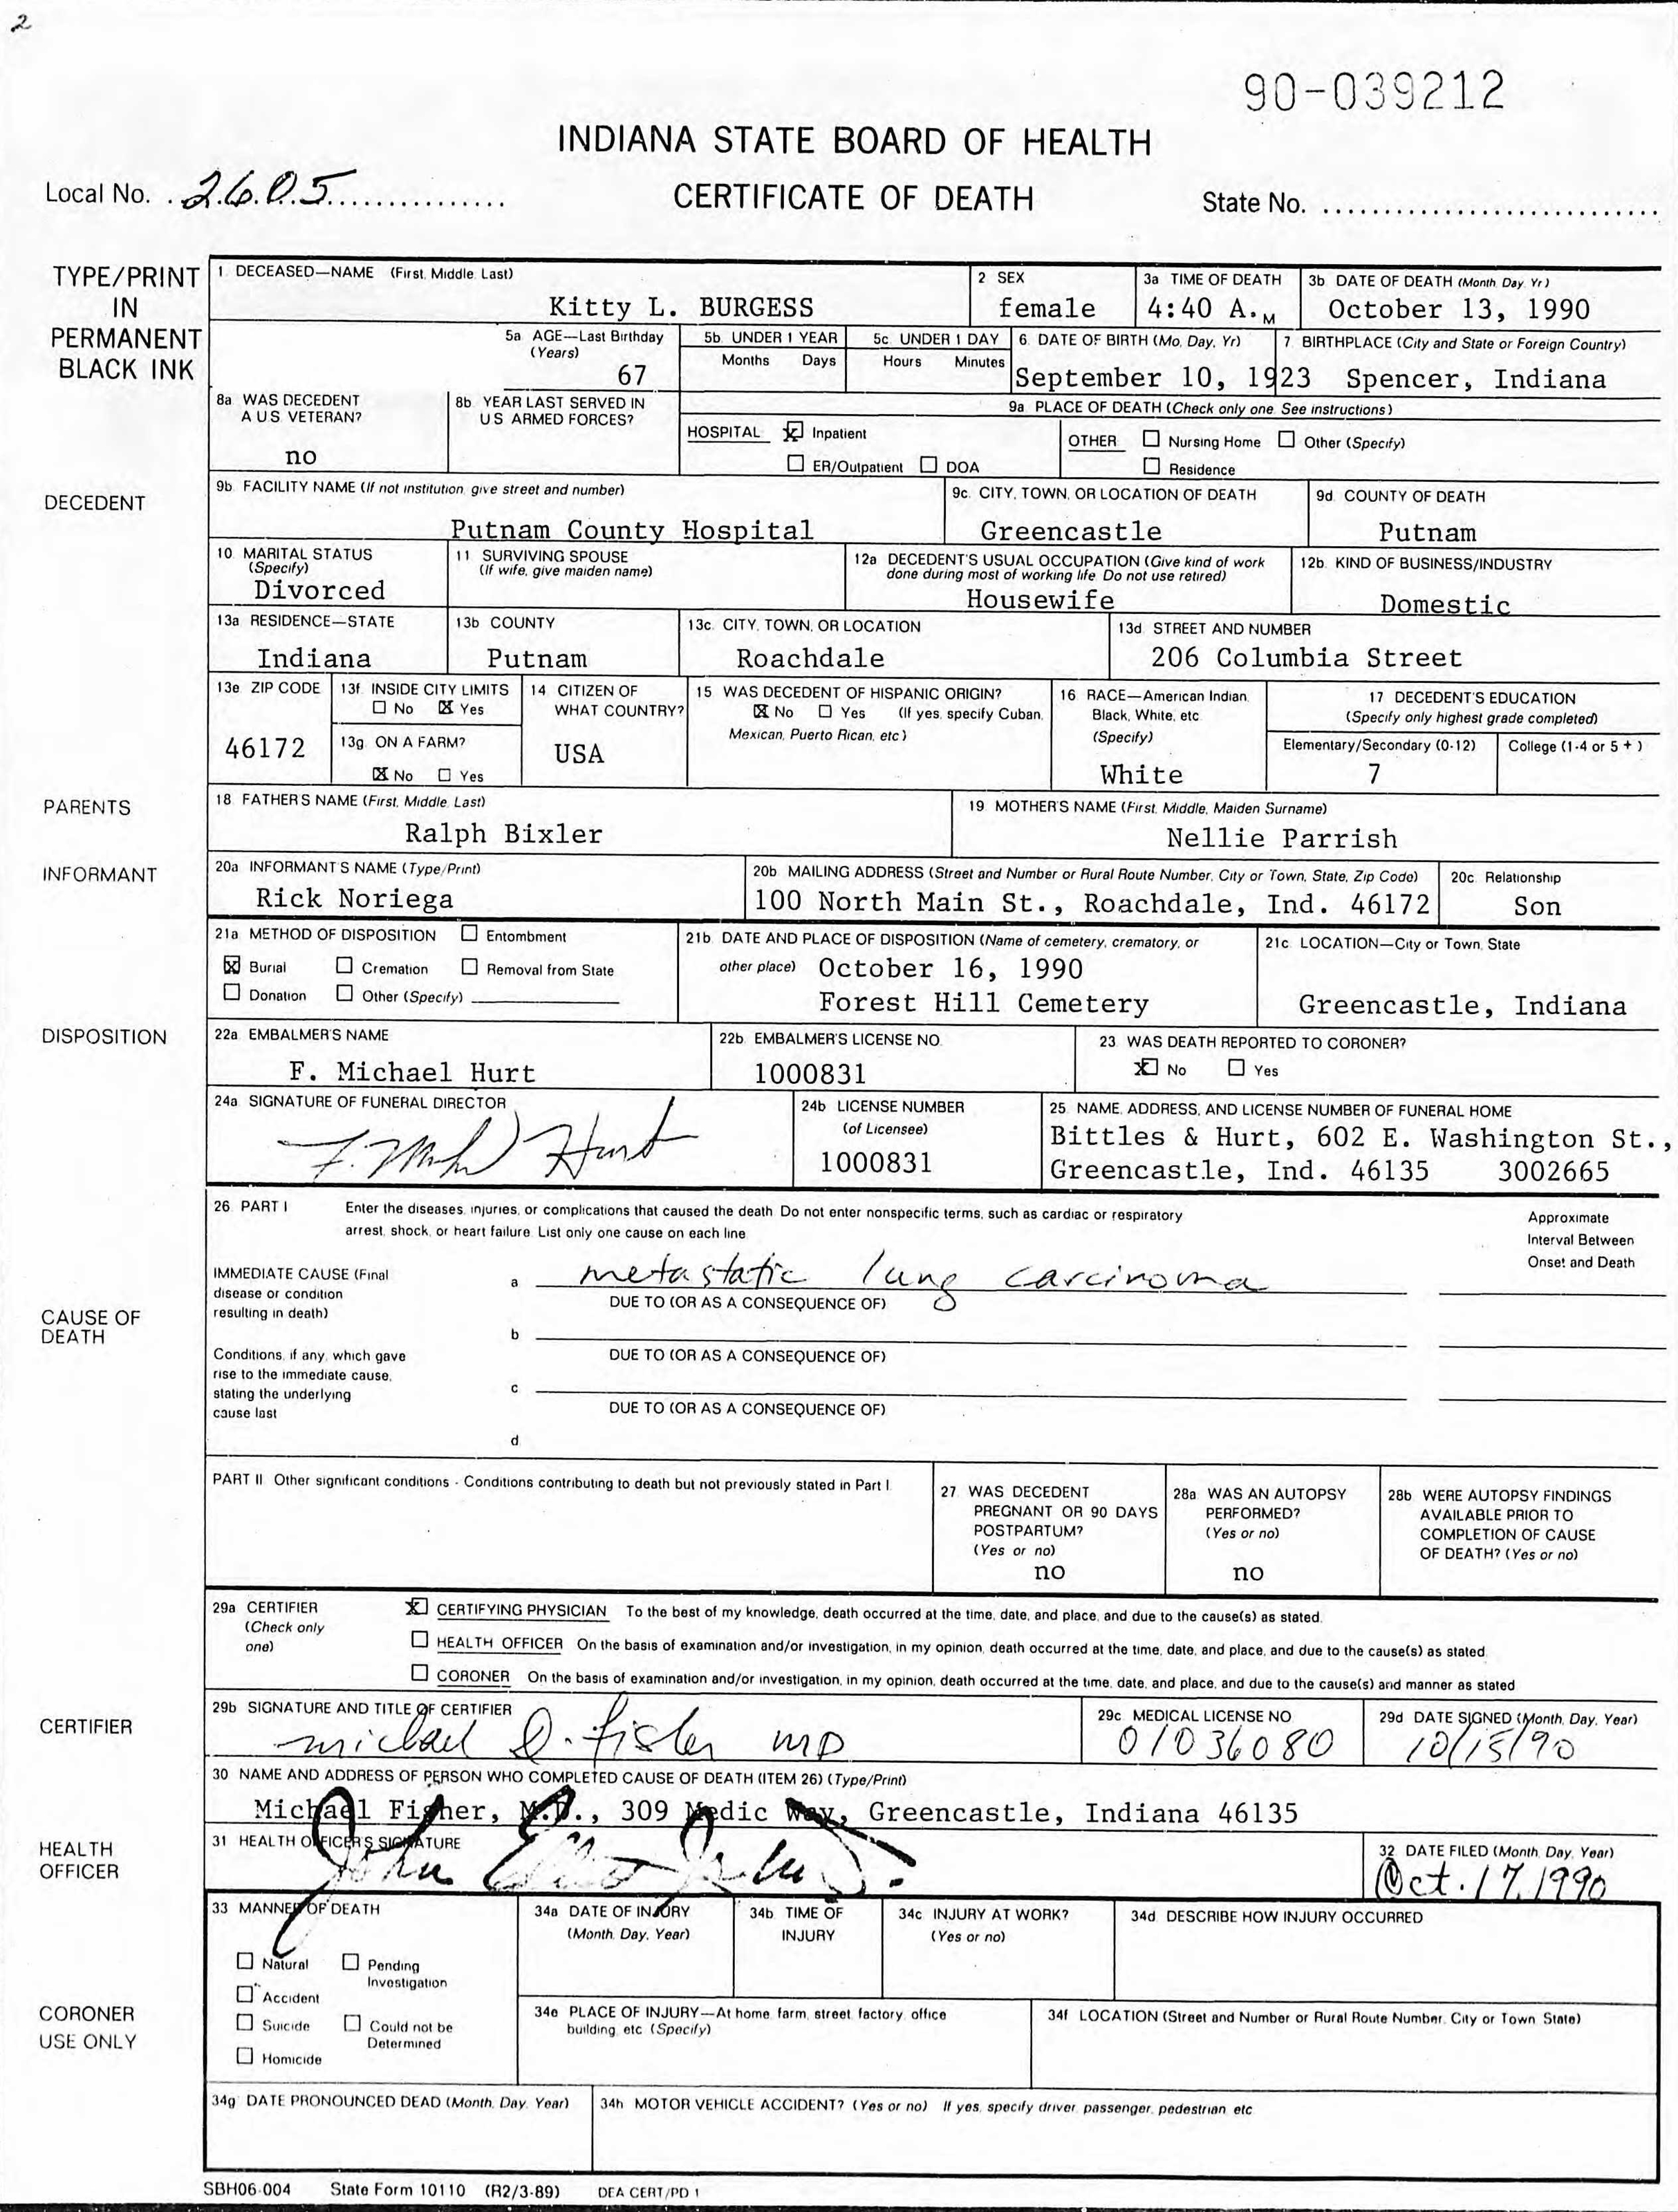 2
90-039212
INDIANA STATE BOARD OF HEALTH
Local No. 2605
CERTIFICATE OF DEATH
State No.
TYPE/PRINT IN PERMANENT BLACK INK
1 DECEASED—NAME (First, Middle, Last)
Kitty L. BURGESS
2 SEX
female
3a TIME OF DEATH
4:40 A.M
3b. DATE OF DEATH (Month, Day, Yr.)
October 13, 1990
5a AGE—Last Birthday (Years)
67
5b. UNDER 1 YEAR
Months Days
5c. UNDER 1 DAY
Hours Minutes
6. DATE OF BIRTH (Mo, Day, Yr)
September 10, 1923
7. BIRTHPLACE (City and State or Foreign Country)
Spencer, Indiana
DECEDENT
8a WAS DECEDENT A U.S. VETERAN?
no
8b YEAR LAST SERVED IN U.S. ARMED FORCES?
9a PLACE OF DEATH (Check only one. See instructions)
HOSPITAL ☒ Inpatient
☐ ER/Outpatient ☐ DOA
OTHER ☐ Nursing Home ☐ Other (Specify)
☐ Residence
9b. FACILITY NAME (If not institution, give street and number)
Putnam County Hospital
9c. CITY, TOWN, OR LOCATION OF DEATH
Greencastle
9d. COUNTY OF DEATH
Putnam
10. MARITAL STATUS (Specify)
Divorced
11 SURVIVING SPOUSE (If wife, give maiden name)
12a DECEDENT'S USUAL OCCUPATION (Give kind of work done during most of working life. Do not use retired)
Housewife
12b. KIND OF BUSINESS/INDUSTRY
Domestic
13a RESIDENCE—STATE
Indiana
13b COUNTY
Putnam
13c. CITY, TOWN, OR LOCATION
Roachdale
13d. STREET AND NUMBER
206 Columbia Street
13e. ZIP CODE
46172
13f. INSIDE CITY LIMITS
☐ No ☒ Yes
13g. ON A FARM?
☒ No ☐ Yes
14. CITIZEN OF WHAT COUNTRY?
USA
15 WAS DECEDENT OF HISPANIC ORIGIN?
☒ No ☐ Yes (If yes, specify Cuban, Mexican, Puerto Rican, etc.)
16 RACE—American Indian, Black, White, etc. (Specify)
White
17 DECEDENT'S EDUCATION (Specify only highest grade completed)
Elementary/Secondary (0-12)
7
College (1-4 or 5 +)
PARENTS
18. FATHER'S NAME (First, Middle, Last)
Ralph Bixler
19. MOTHER'S NAME (First, Middle, Maiden Surname)
Nellie Parrish
INFORMANT
20a INFORMANT'S NAME (Type/Print)
Rick Noriega
20b. MAILING ADDRESS (Street and Number or Rural Route Number, City or Town, State, Zip Code)
100 North Main St., Roachdale, Ind. 46172
20c. Relationship
Son
DISPOSITION
21a METHOD OF DISPOSITION ☐ Entombment
☒ Burial ☐ Cremation ☐ Removal from State
☐ Donation ☐ Other (Specify)
21b. DATE AND PLACE OF DISPOSITION (Name of cemetery, crematory, or other place)
October 16, 1990
Forest Hill Cemetery
21c. LOCATION—City or Town, State
Greencastle, Indiana
22a EMBALMER'S NAME
F. Michael Hurt
22b. EMBALMER'S LICENSE NO.
1000831
23. WAS DEATH REPORTED TO CORONER?
☒ No ☐ Yes
24a SIGNATURE OF FUNERAL DIRECTOR
Hurt
24b LICENSE NUMBER (of Licensee)
1000831
25. NAME, ADDRESS, AND LICENSE NUMBER OF FUNERAL HOME
Bittles & Hurt, 602 E. Washington St.,
Greencastle, Ind. 46135 3002665
CAUSE OF DEATH
26. PART I Enter the diseases, injuries, or complications that caused the death. Do not enter nonspecific terms, such as cardiac or respiratory
arrest, shock, or heart failure. List only one cause on each line
Approximate Interval Between Onset and Death
IMMEDIATE CAUSE (Final disease or condition resulting in death)
a metastatic lung carcinoma
DUE TO (OR AS A CONSEQUENCE OF)
b
Conditions, if any, which gave rise to the immediate cause, stating the underlying cause last
DUE TO (OR AS A CONSEQUENCE OF)
c
DUE TO (OR AS A CONSEQUENCE OF)
d
PART II. Other significant conditions - Conditions contributing to death but not previously stated in Part I.
27. WAS DECEDENT PREGNANT OR 90 DAYS POSTPARTUM? (Yes or no)
no
28a WAS AN AUTOPSY PERFORMED? (Yes or no)
no
28b WERE AUTOPSY FINDINGS AVAILABLE PRIOR TO COMPLETION OF CAUSE OF DEATH? (Yes or no)
CERTIFIER
29a CERTIFIER (Check only one)
☒ CERTIFYING PHYSICIAN To the best of my knowledge, death occurred at the time, date, and place, and due to the cause(s) as stated.
☐ HEALTH OFFICER On the basis of examination and/or investigation, in my opinion, death occurred at the time, date, and place, and due to the cause(s) as stated
☐ CORONER On the basis of examination and/or investigation, in my opinion, death occurred at the time, date, and place, and due to the cause(s) and manner as stated
29b SIGNATURE AND TITLE OF CERTIFIER
michael D. fisher MD
29c. MEDICAL LICENSE NO
01036080
29d DATE SIGNED (Month, Day, Year)
10/15/90
30 NAME AND ADDRESS OF PERSON WHO COMPLETED CAUSE OF DEATH (ITEM 26) (Type/Print)
Michael Fisher, M.D., 309 Medic Way, Greencastle, Indiana 46135
HEALTH OFFICER
31 HEALTH OFFICER'S SIGNATURE
John
32. DATE FILED (Month, Day, Year)
Oct. 17, 1990
CORONER USE ONLY
33 MANNER OF DEATH
☐ Natural ☐ Pending Investigation
☐ Accident
☐ Suicide ☐ Could not be Determined
☐ Homicide
34a DATE OF INJURY (Month, Day, Year)
34b TIME OF INJURY
34c INJURY AT WORK? (Yes or no)
34d. DESCRIBE HOW INJURY OCCURRED
34e PLACE OF INJURY—At home, farm, street, factory, office building, etc. (Specify)
34f LOCATION (Street and Number or Rural Route Number, City or Town, State)
34g DATE PRONOUNCED DEAD (Month, Day, Year)
34h MOTOR VEHICLE ACCIDENT? (Yes or no) If yes, specify driver, passenger, pedestrian, etc
SBH06-004 State Form 10110 (R2/3-89) DEA CERT/PD 1